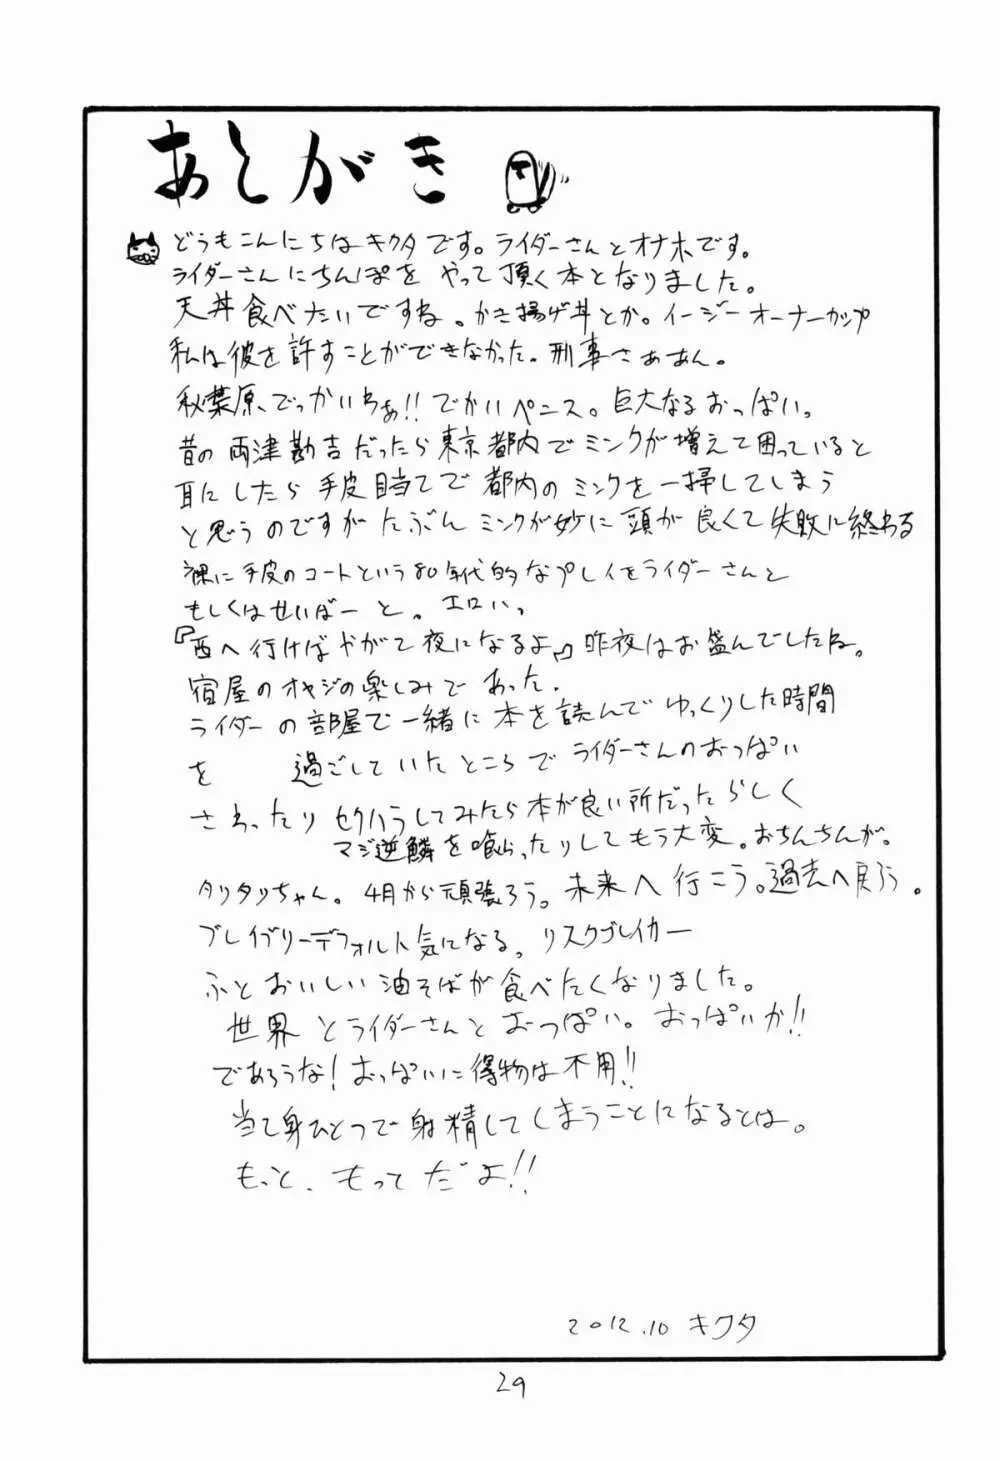 あとがき
どうもこんにちはキクタです。ライダーさんとオナホです。
ライダーさんにちんぽをやって頂く本となりました。
天丼食べたいですね。かき揚げ丼とか。イージーオーナーカップ
私は彼を許すことができなかった。刑事さぁあん。
秋葉原、でっかいわぁ!!でかいペニス。巨大なるおっぱい。
昔の両津勘吉だったら東京都内でミンクが増えて困っていると
耳にしたら手皮目当てで都内のミンクを一掃してしまう
と思うのですがたぶんミンクが妙に頭が良くて失敗に終わる
裸に手皮のコートという80年代的なプレイをライダーさんと
もしくはせいばーと。エロい。
『西へ行けばやがて夜になるよ』昨夜はお盛んでしたね。
宿屋のオヤジの楽しみであった.
ライダーの部屋で一緒に本を読んでゆっくりした時間
を 過ごしていたところでライダーさんのおっぱい
さわったりセクハラしてみたら本が良い所だったらしく
マジ逆鱗を喰らったりしてもう大変。おちんちんが。
タリタリちゃん。4月から頑張ろう。未来へ行こう。過去へ戻ろう。
ブレイブリーデフォルト気になる。リスクブレイカー
ふとおいしい油そばが食べたくなりました。
世界とライダーさんとおっぱい。おっぱいか!!
であろうな!おっぱいに得物は不用!!
当て身ひとつで射精してしまうことになるとは。
もっと、もってだよ!!
2012.10 キクタ
29